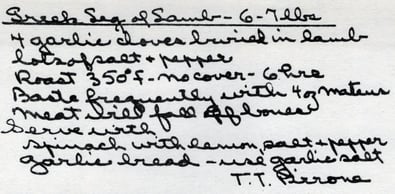 Greek Leg of Lamb - 6-7 lbs
4 garlic cloves buried in lamb
lots of salt + pepper
Roast 350°F - no cover - 6 hrs
Baste frequently with 4 oz mateus
Meat will fall off bones
Serve with
spinach with lemon, salt + pepper
garlic bread - use garlic salt
T.T. Pirrone